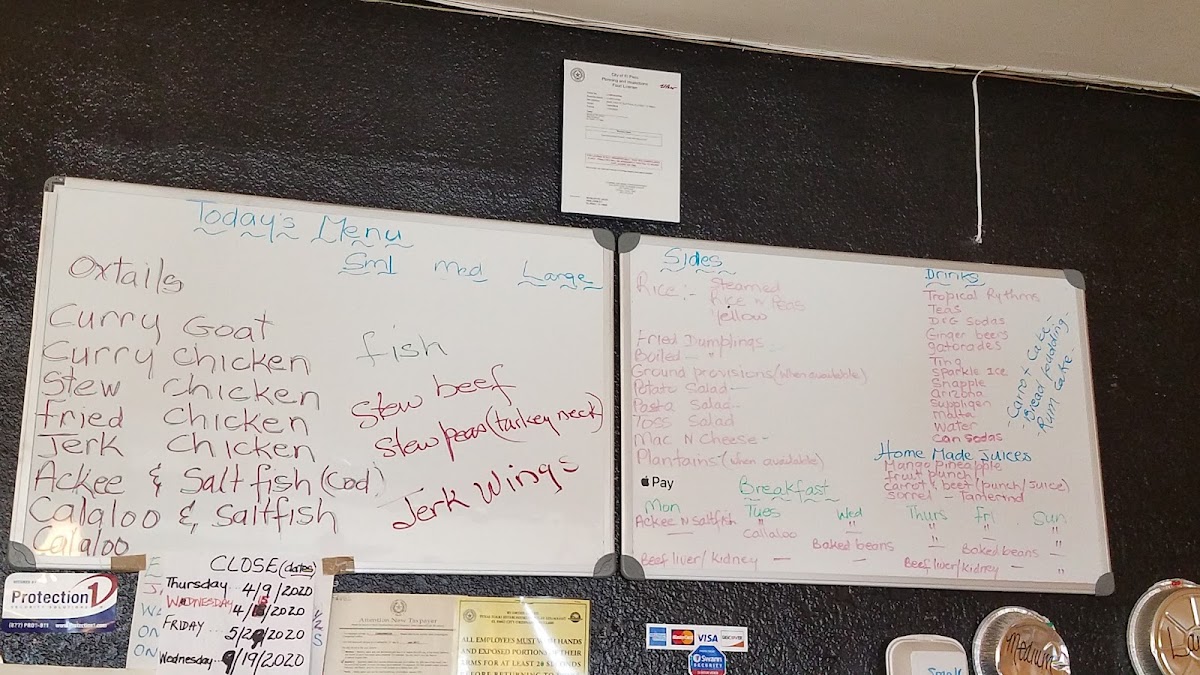 City of El Paso
Planning and Inspections
Food License
Today's Menu
Sml Med Large
Oxtails
Curry Goat
Curry Chicken
Stew Chicken
Fried Chicken
Jerk Chicken
Ackee & Salt fish (Cod)
Calaloo & Saltfish
Calaloo
fish
Stew beef
Stew peas (turkey neck)
Jerk Wings
Sides
Rice:- Steamed
Rice N Peas
Yellow
Fried Dumplings
Boiled — "
Ground provisions (when available)
Potato Salad —
Pasta Salad..
Toss Salad
Mac N Cheese -
Plantains - (when available)
Drinks
Tropical Rythms
Teas
D&G Sodas
Ginger beers
gatorades
Ting
Sparkle Ice
Snapple
Arizona
Suppligen
Malta
Water
Can Sodas
-Carrot Cake-
-Bread pudding-
-Rum Cake-
Home Made Juices
Mango Pineapple
fruit punch
carrot & beet (punch/juice)
Sorrel - Tamerind
Pay
Breakfast
Mon Tues Wed Thurs Fri Sun
Ackee N Saltfish " " " "
Callaloo " "
Baked beans Baked beans — "
Beef liver/kidney — Beef liver/kidney — "
Protection 1
SECURITY SOLUTIONS
(877) PRO1-911 www.protection1.com
CLOSE (dates)
Thursday 4/9/2020
WEDNESDAY 4/15/2020
FRIDAY 5/29/2020
Wednesday 9/19/2020
Attention New Taxpayer
ALL EMPLOYEES MUST WASH HANDS
AND EXPOSED PORTIONS OF THEIR
ARMS FOR AT LEAST 20 SECONDS
BEFORE RETURNING TO
MasterCard VISA DISCOVER
Swann
SECURITY
Small
Medium